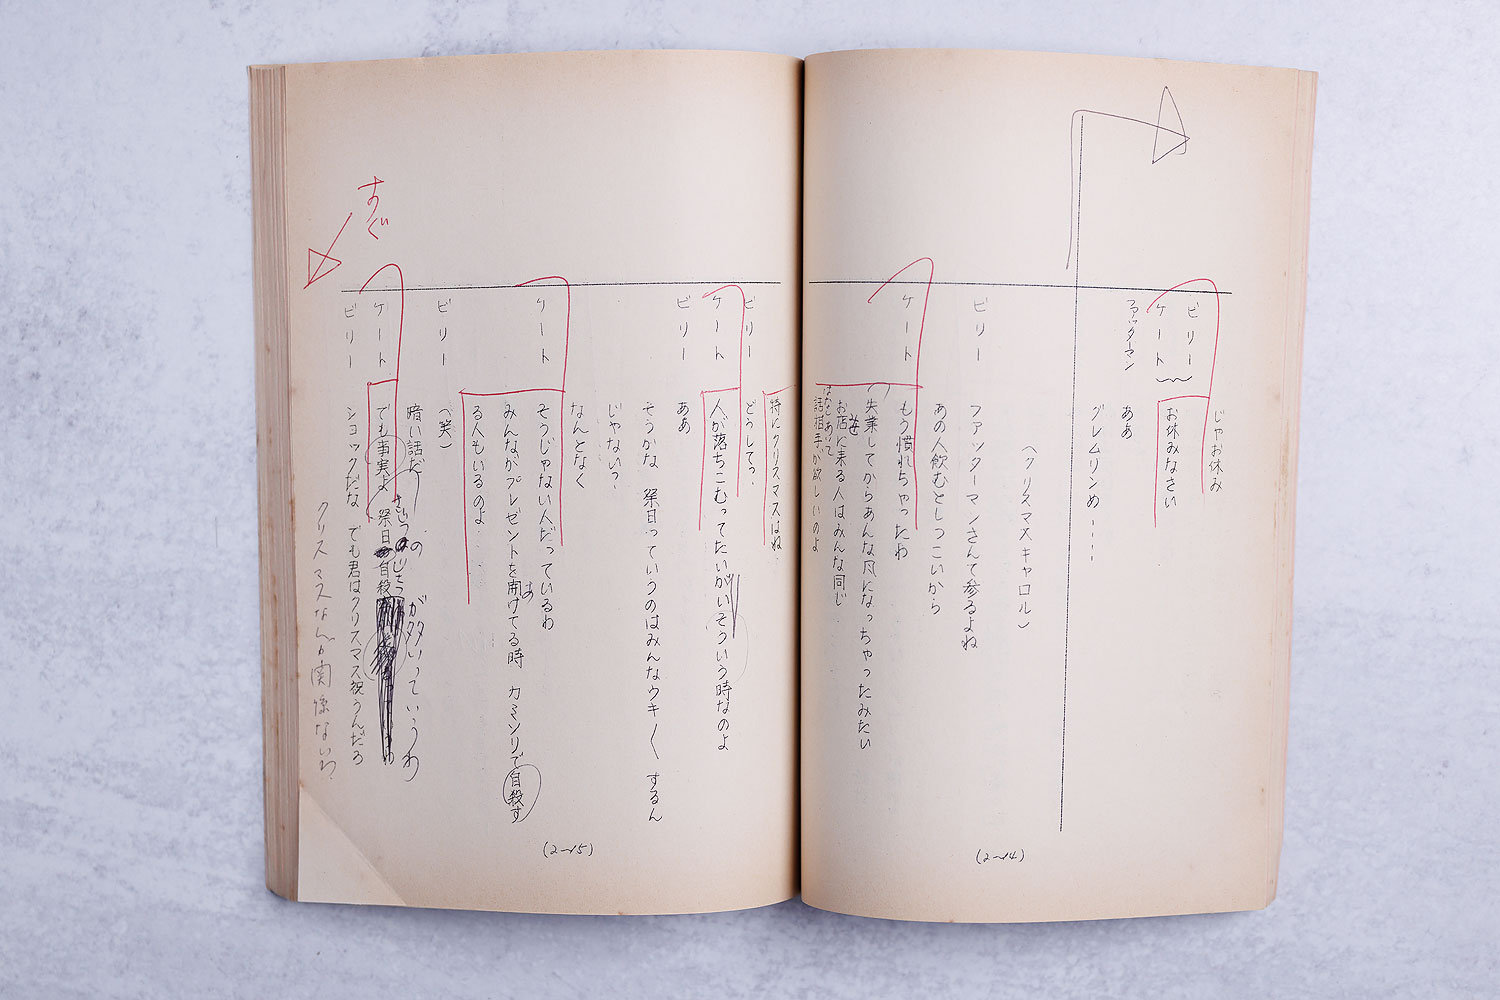 ビリー　じゃお休み
ケート　お休みなさい
ファッターマン　ああ
グレムリンめ‥‥
（クリスマスキャロル）
ビリー　ファッターマンさんて参るよね
あの人飲むとしつこいから
ケート　もう慣れちゃったわ
失業してからあんな風になっちゃったみたい
お店に来る人はみんな同じ
みせ
話相手が欲しいのよ
はなしあいて
(2-14)
特にクリスマスはね
ビリー　どうしてっ・
ケート　人が落ちこむってたいがいそういう時なのよ
ビリー　ああ
そうかな　祭日っていうのはみんなウキ〱するん
じゃないっ・
なんとなく
ケート　そうじゃない人だっているわ
みんながプレゼントを開けてる時　カミソリで自殺す
あ
る人もいるのよ
ビリー　（笑）
暗い話だ
ケート　でも事実よ　祭日　自殺
さいじつ
の
じさつ
が多いっていうわ
ビリー　ショックだな　でも君はクリスマス祝うんだろ
クリスマスなんか関係ないわ
すぐ
(2-15)